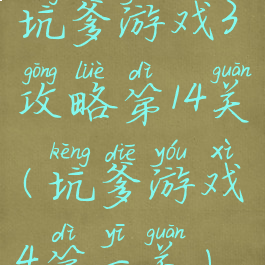 坑爹游戏3
gōng lüè dì guān
攻略第14关
kēng diē yóu xì
(坑爹游戏
dì yī guān
4第一关)